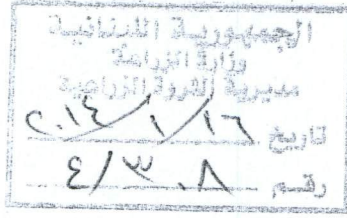 الجمهورية اللبنانية
وزارة الزراعة
مديرية الثروة الزراعية
تاريخ ٢٠١٤/١/١٦
رقم ٤/٣٠٨